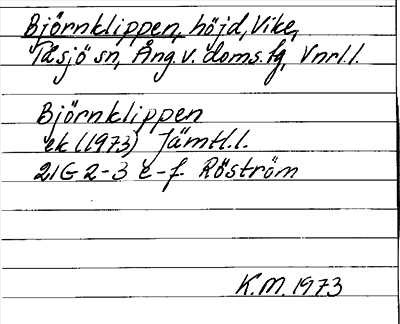 Björnklippen, höjd, Vike,
Tåsjö sn, Ång v. doms. fg, Vnrl.l.
Björnklippen
ek (1973) Jämtl.l.
21G 2-3 e-f Röström
K.M. 1973